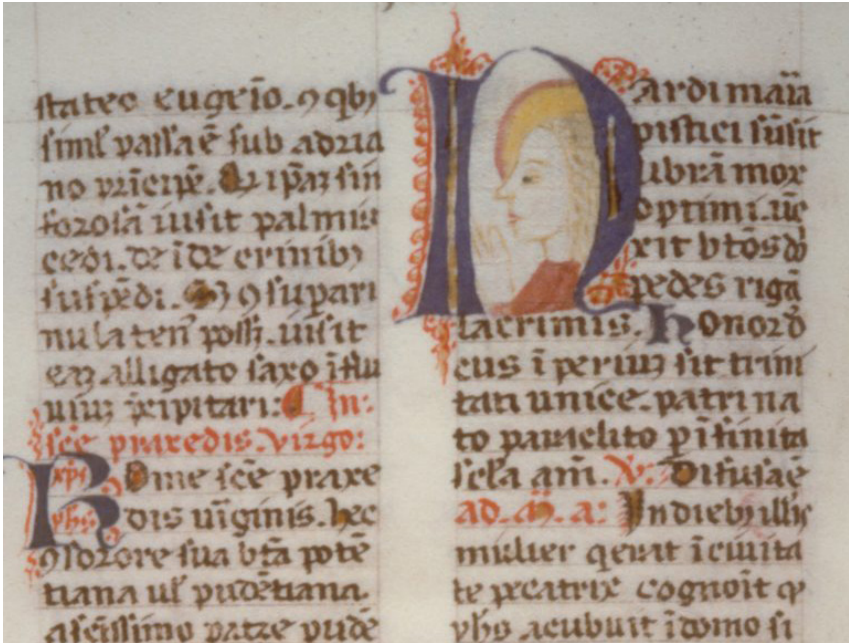 stateo eugēio. ꝯ qb᷒
siml̄ passa ē sub adria
no prīcipē. Qr ipāȝ sin
forosā iusit palmis
cedi. de īde crinib᷒
suspēdi. Sȝ ꝯ supari
nula ten᷒ poss;. uisit
eaȝ alligato saxo ī flu
uiuȝ p̄cipitari: ¶ In
scē praxedis. virgo:
Rome scē praxe
dis uīginis. hec
ꝯ sorore sua bt̄a potē
tiana ul̄ pudētiana.
a sc̄issimo patre pudē
Nardi marīa
pistici sūsit
librā mox
optimi. ūc
xit bt̄os dn̄i
pedes rigā
lacrimis. honor d̄
cus īperiuȝ sit trini
tati unice. patri na
to paraclito p īfinita
scl̄a am̄. V̄. Difusa ē
ad. M̄. a: In dieb᷒ ill᷒
mulier q̄ erat ī ciuita
te pecatrix cognoīt ꝙ
yhs acubuit ī domo si